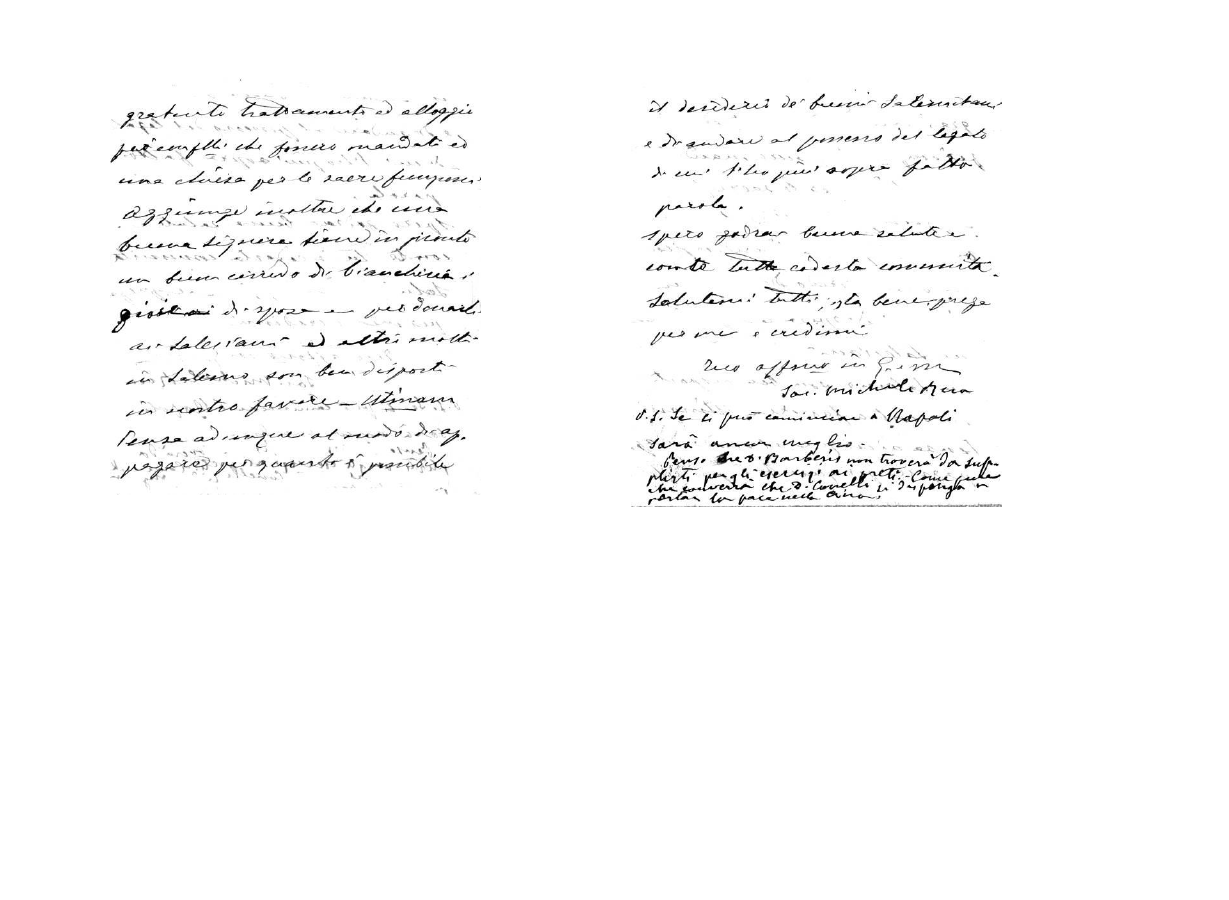 gratuito trattamento ed alloggio
che fossero mandati ed
una chiesa per le sacre funzioni
aggiunge inoltre che una
buona signora tiene in pronto
un buon corredo di biancheria
di sposa per donarli
ai Salesiani ed altri molti
in Salerno son ben disposti
in nostro favore – Utinam
Pensa adunque al modo di ap-
pagare per quanto è possibile
il desiderio de' buoni Salernitani
e di andare al possesso del legato
di cui t'ho più sopra fatto
parola.
Spero godrai buona salute e
tutta codesta comunità.
Salutami tutti, sta bene, prega
per me e credimi
Tuo affmo in G. 
Sac. Michele Rua
P.S. Se si può cominciare a Napoli
sarà ancor meglio.
Penso che D. Barberis non troverà da sup-
plirti per gli esercizi ai preti. Come pure
che converrà che D. si disponga a
portar la pace nella